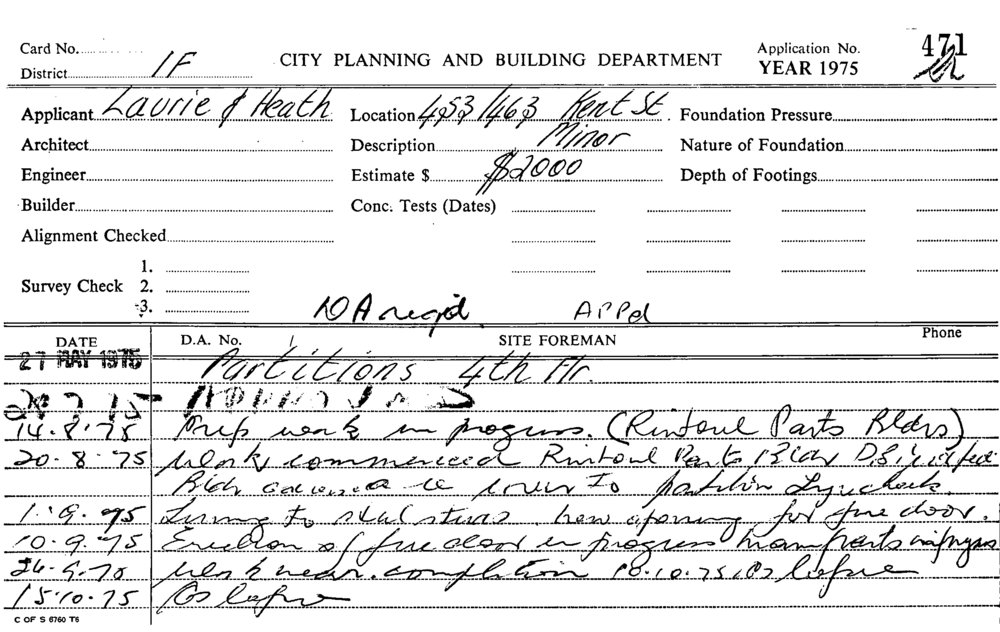 Card No.
District 1F
CITY PLANNING AND BUILDING DEPARTMENT
Application No. 471
YEAR 1975
Applicant Laurie & Heath
Location 453/463 Kent St.
Foundation Pressure
Architect
Description Minor
Nature of Foundation
Engineer
Estimate $ $2000
Depth of Footings
Builder
Conc. Tests (Dates)
Alignment Checked
Survey Check
1.
2.
3.
DA req'd APPd
DATE D.A. No. SITE FOREMAN Phone
27 MAY 1975 Partitions 4th Flr.
14.8.75 Prep work in progress. (Rintoul Parts Bldrs)
20.8.75 Work commenced Rintoul Parts Bldr
Bldr to partition
1.9.75 Lining to steel studs. new opening for fire door.
10.9.75 Erection of fire door in progress main parts in progress
26.9.75 Work near completion 10.10.75 As before
15.10.75 As before
C OF S 6760 T6